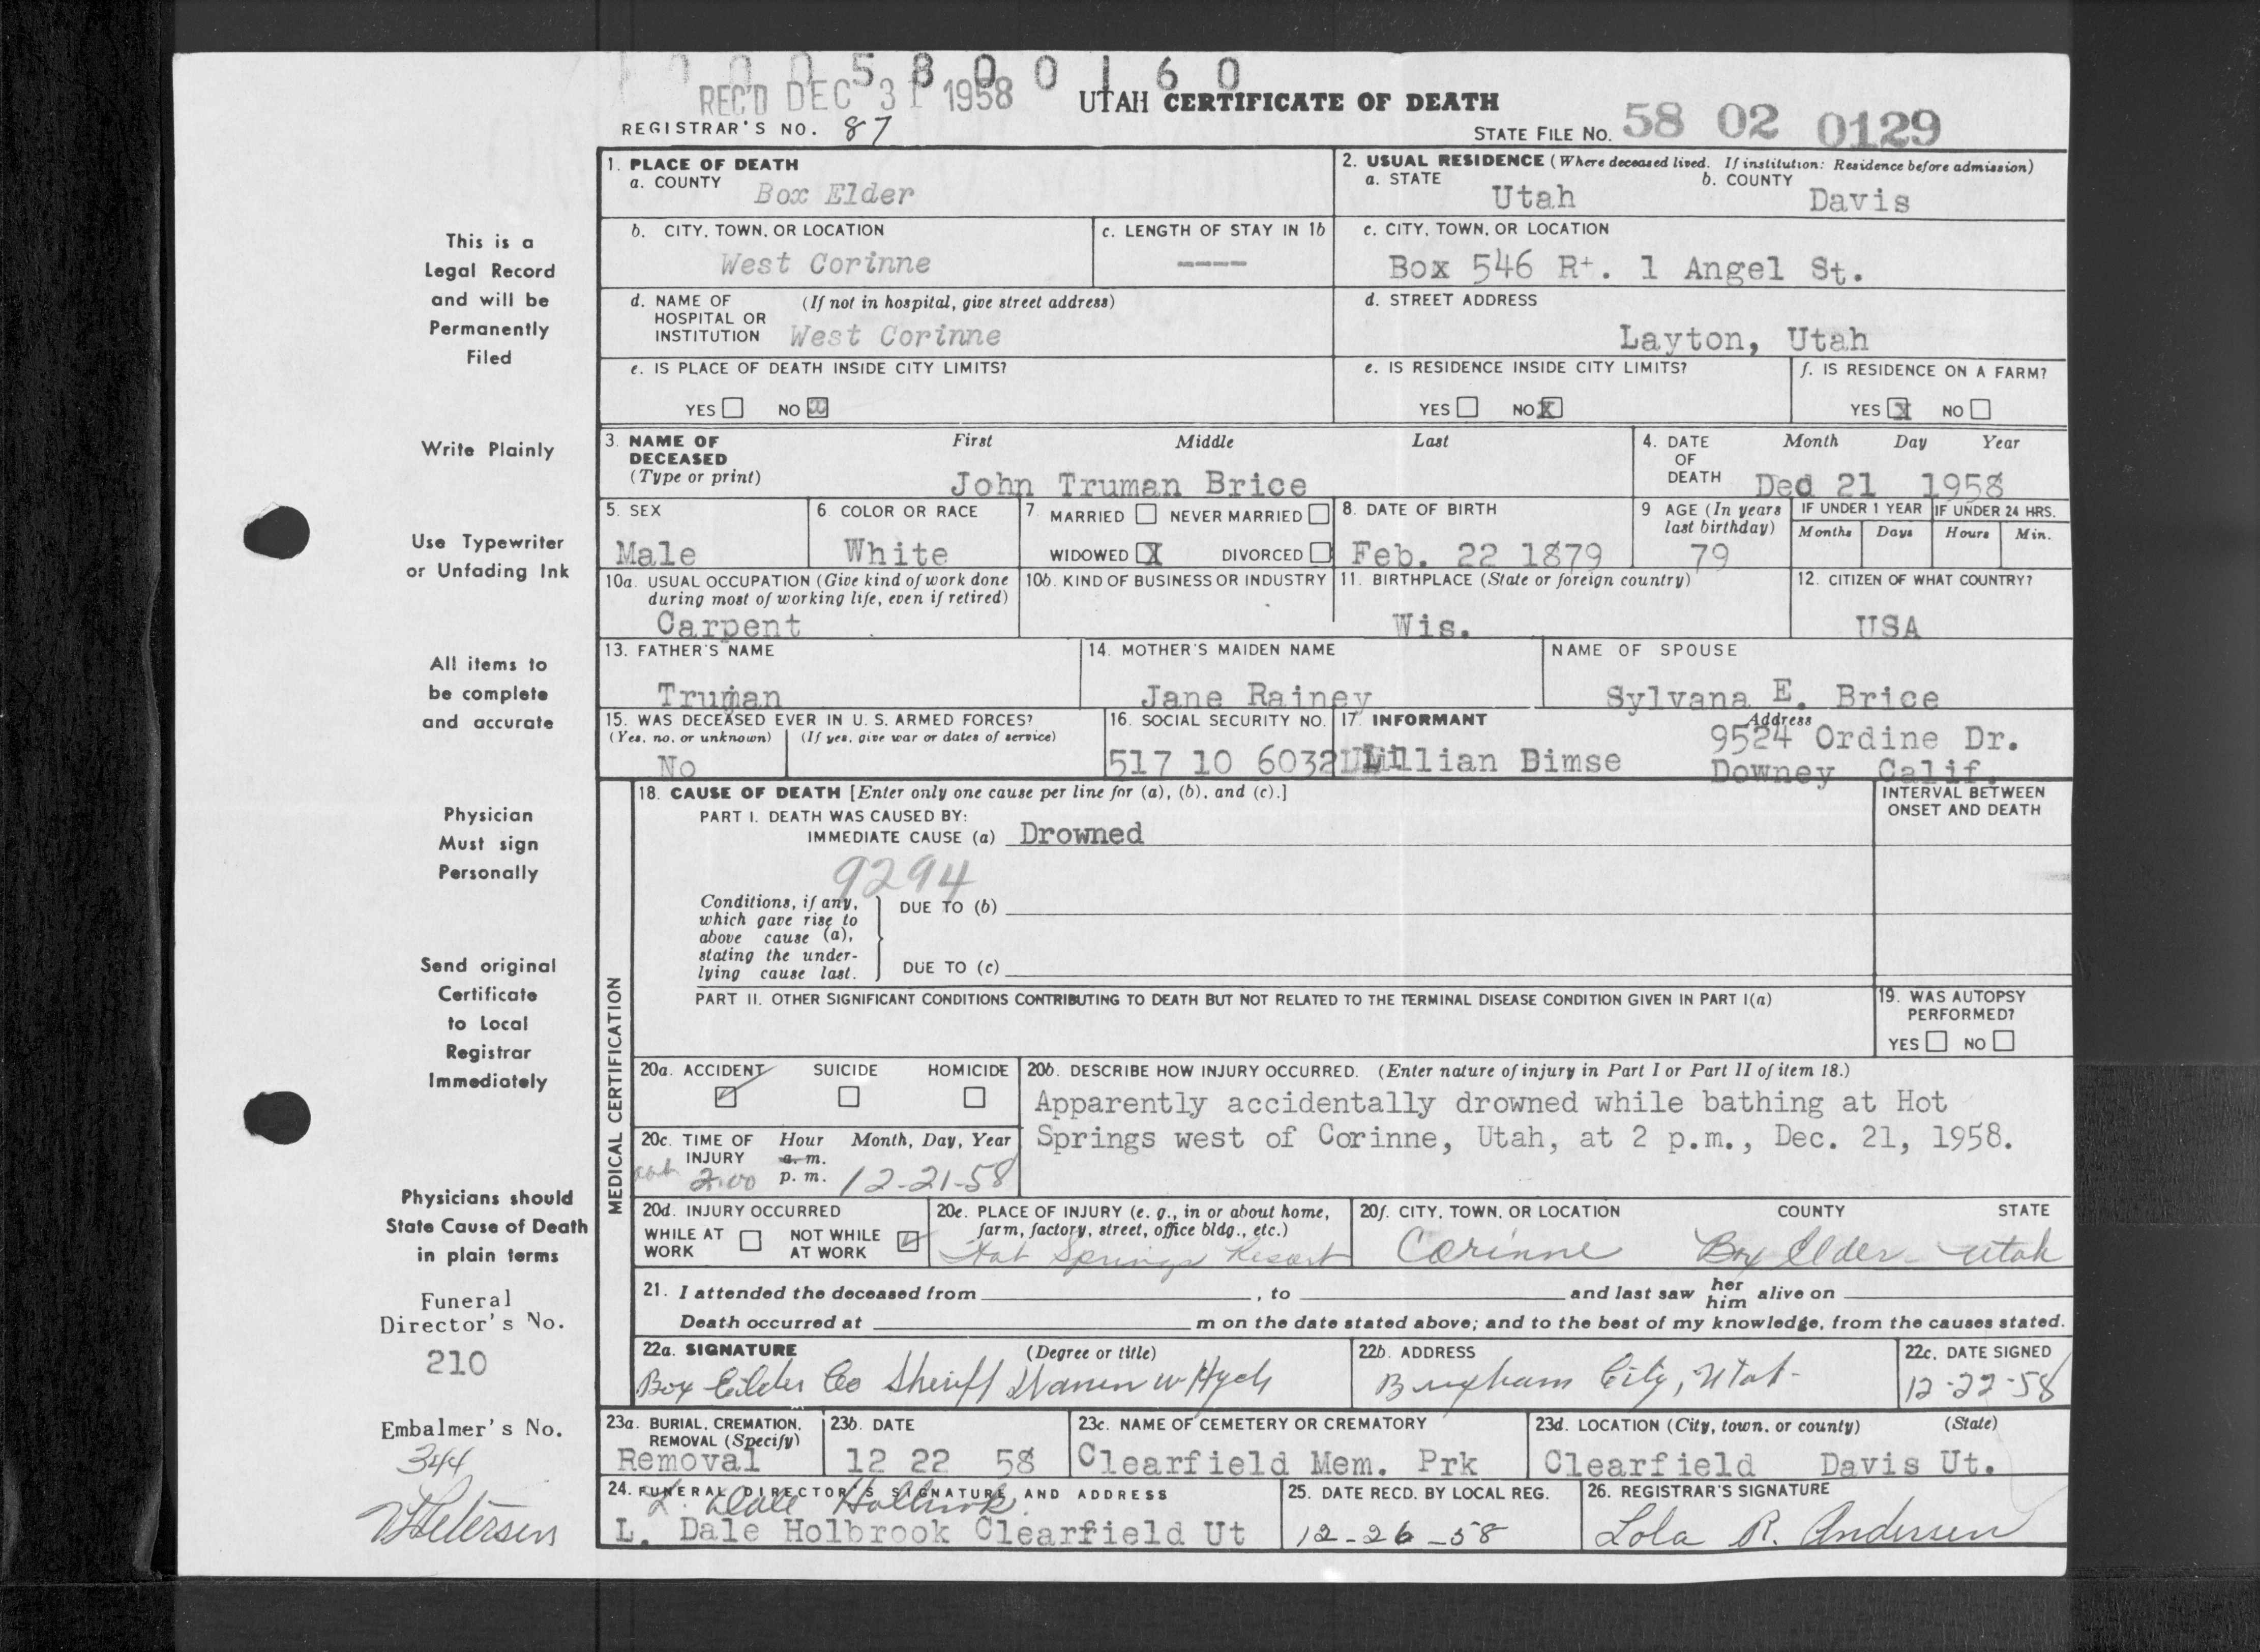 1 0 0 5 8 0 0 1 6 0
REC'D DEC 31 1958
UTAH CERTIFICATE OF DEATH
REGISTRAR'S NO. 87
STATE FILE NO. 58 02 0129
This is a
Legal Record
and will be
Permanently
Filed
Write Plainly
Use Typewriter
or Unfading Ink
All items to
be complete
and accurate
Physician
Must sign
Personally
Send original
Certificate
to Local
Registrar
Immediately
Physicians should
State Cause of Death
in plain terms
Funeral
Director's No.
210
Embalmer's No.
344
Petersen
1. PLACE OF DEATH
a. COUNTY
Box Elder
2. USUAL RESIDENCE (Where deceased lived. If institution: Residence before admission)
a. STATE b. COUNTY
Utah Davis
b. CITY, TOWN, OR LOCATION
West Corinne
c. LENGTH OF STAY IN 1b
----
c. CITY, TOWN, OR LOCATION
Box 546 Rt. 1 Angel St.
d. NAME OF (If not in hospital, give street address)
HOSPITAL OR
INSTITUTION West Corinne
d. STREET ADDRESS
Layton, Utah
e. IS PLACE OF DEATH INSIDE CITY LIMITS?
YES NO x
e. IS RESIDENCE INSIDE CITY LIMITS?
YES NO X
f. IS RESIDENCE ON A FARM?
YES X NO
3. NAME OF First Middle Last
DECEASED
(Type or print) John Truman Brice
4. DATE Month Day Year
OF
DEATH Ded 21 1958
5. SEX
Male
6. COLOR OR RACE
White
7. MARRIED NEVER MARRIED
WIDOWED X DIVORCED
8. DATE OF BIRTH
Feb. 22 1879
9 AGE (In years
last birthday)
79
IF UNDER 1 YEAR IF UNDER 24 HRS.
Months Days Hours Min.
10a. USUAL OCCUPATION (Give kind of work done
during most of working life, even if retired)
Carpent
10b. KIND OF BUSINESS OR INDUSTRY
11. BIRTHPLACE (State or foreign country)
Wis.
12. CITIZEN OF WHAT COUNTRY?
USA
13. FATHER'S NAME
Truman
14. MOTHER'S MAIDEN NAME
Jane Rainey
NAME OF SPOUSE
Sylvana E. Brice
15. WAS DECEASED EVER IN U. S. ARMED FORCES?
(Yes, no, or unknown) (If yes, give war or dates of service)
No
16. SOCIAL SECURITY NO.
517 10 6032
17. INFORMANT Address
Lillian Dimse
9524 Ordine Dr.
Downey Calif.
MEDICAL CERTIFICATION
18. CAUSE OF DEATH [Enter only one cause per line for (a), (b), and (c).]
PART I. DEATH WAS CAUSED BY:
IMMEDIATE CAUSE (a) Drowned
9294
Conditions, if any,
which gave rise to
above cause (a),
stating the under-
lying cause last.
DUE TO (b)
DUE TO (c)
INTERVAL BETWEEN
ONSET AND DEATH
PART II. OTHER SIGNIFICANT CONDITIONS CONTRIBUTING TO DEATH BUT NOT RELATED TO THE TERMINAL DISEASE CONDITION GIVEN IN PART I(a)
19. WAS AUTOPSY
PERFORMED?
YES NO
20a. ACCIDENT SUICIDE HOMICIDE
20b. DESCRIBE HOW INJURY OCCURRED. (Enter nature of injury in Part I or Part II of item 18.)
Apparently accidentally drowned while bathing at Hot
Springs west of Corinne, Utah, at 2 p.m., Dec. 21, 1958.
20c. TIME OF Hour Month, Day, Year
INJURY a. m.
2:00 p. m. 12-21-58
20d. INJURY OCCURRED
WHILE AT NOT WHILE
WORK AT WORK
20e. PLACE OF INJURY (e. g., in or about home,
farm, factory, street, office bldg., etc.)
Hot Springs Resort
20f. CITY, TOWN, OR LOCATION COUNTY STATE
Corinne Box Elder Utah
21. I attended the deceased from , to and last saw her him alive on
Death occurred at m on the date stated above; and to the best of my knowledge, from the causes stated.
22a. SIGNATURE (Degree or title)
Box Elder Co Sheriff Warren W Hyde
22b. ADDRESS
Brigham City, Utah
22c. DATE SIGNED
12-22-58
23a. BURIAL, CREMATION,
REMOVAL (Specify)
Removal
23b. DATE
12 22 58
23c. NAME OF CEMETERY OR CREMATORY
Clearfield Mem. Prk
23d. LOCATION (City, town, or county) (State)
Clearfield Davis Ut.
24. FUNERAL DIRECTOR'S SIGNATURE AND ADDRESS
L. Dale Holbrook
L. Dale Holbrook Clearfield Ut
25. DATE RECD. BY LOCAL REG.
12-26-58
26. REGISTRAR'S SIGNATURE
Lola R. Andersen